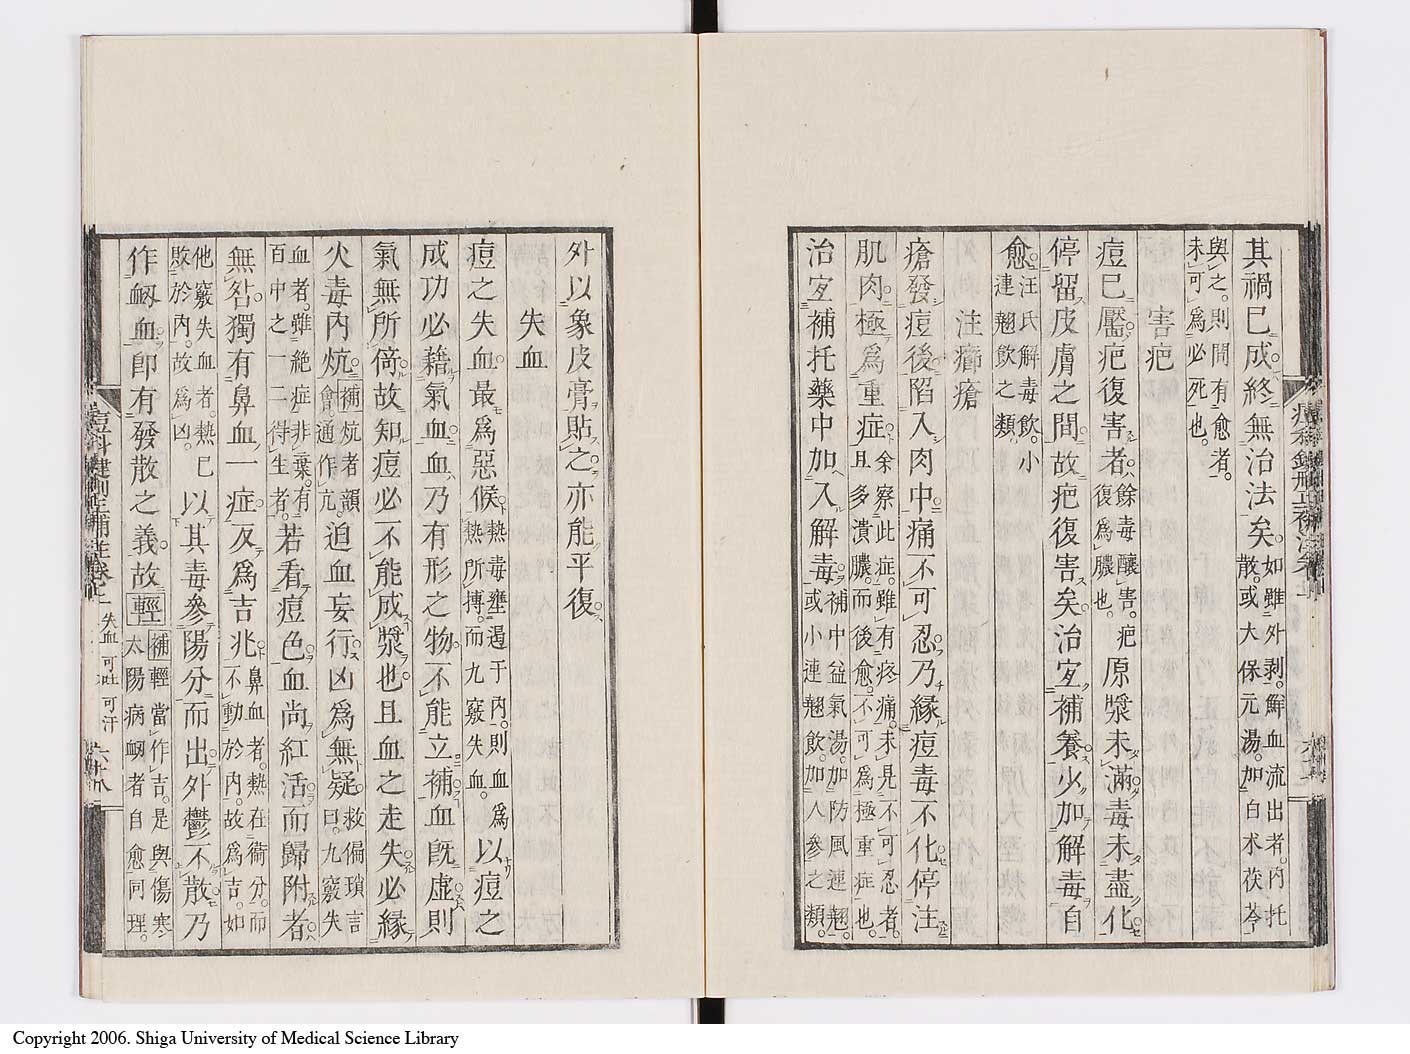 其禍已成終無治法矣如雖外剝鮮血流出者內托
散或大保元湯加白朮茯苓
與之則間有愈者
未可爲必死也
害疤
痘已靨疤復害者餘毒釀害疤
復爲膿也原漿未滿毒未盡化
停留皮膚之間故疤復害矣治宜補養少加解毒自
愈汪氏解毒飲小
連翹飲之類
注癤瘡
瘡發痘後陷入肉中痛不可忍乃緣痘毒不化停注
肌肉極爲重症余察此症雖有疼痛未見不可忍者
且多潰膿而後愈不可爲極重症也
治宜補托藥中加入解毒補中益氣湯加防風連翹
或小連翹飲加人參之類
外以象皮膏貼之亦能平復
失血
痘之失血最爲惡候熱毒壅遏于內則血爲
熱所搏而九竅失血以痘之
成功必藉氣血血乃有形之物不能立補血旣虛則
氣無所倚故知痘必不能成漿也且血之走失必緣
火毒內炕補炕者韻
會通作亢迫血妄行凶爲無疑救偏瑣言
曰九竅失
血者雖絕症非棄有
百中之一二待生者若看痘色血尚紅活而歸附者
無咎獨有鼻血一症反爲吉兆鼻血者熱在衛分而
不動於內故爲吉如
他竅失血者熱已
敗於內故爲凶以其毒參陽分而出外鬱不散乃
作衂血卽有發散之義故輕補輕當作吉是與傷寒
太陽病衂者自愈同理
失血 可吐 可汗
Copyright 2006. Shiga University of Medical Science Library